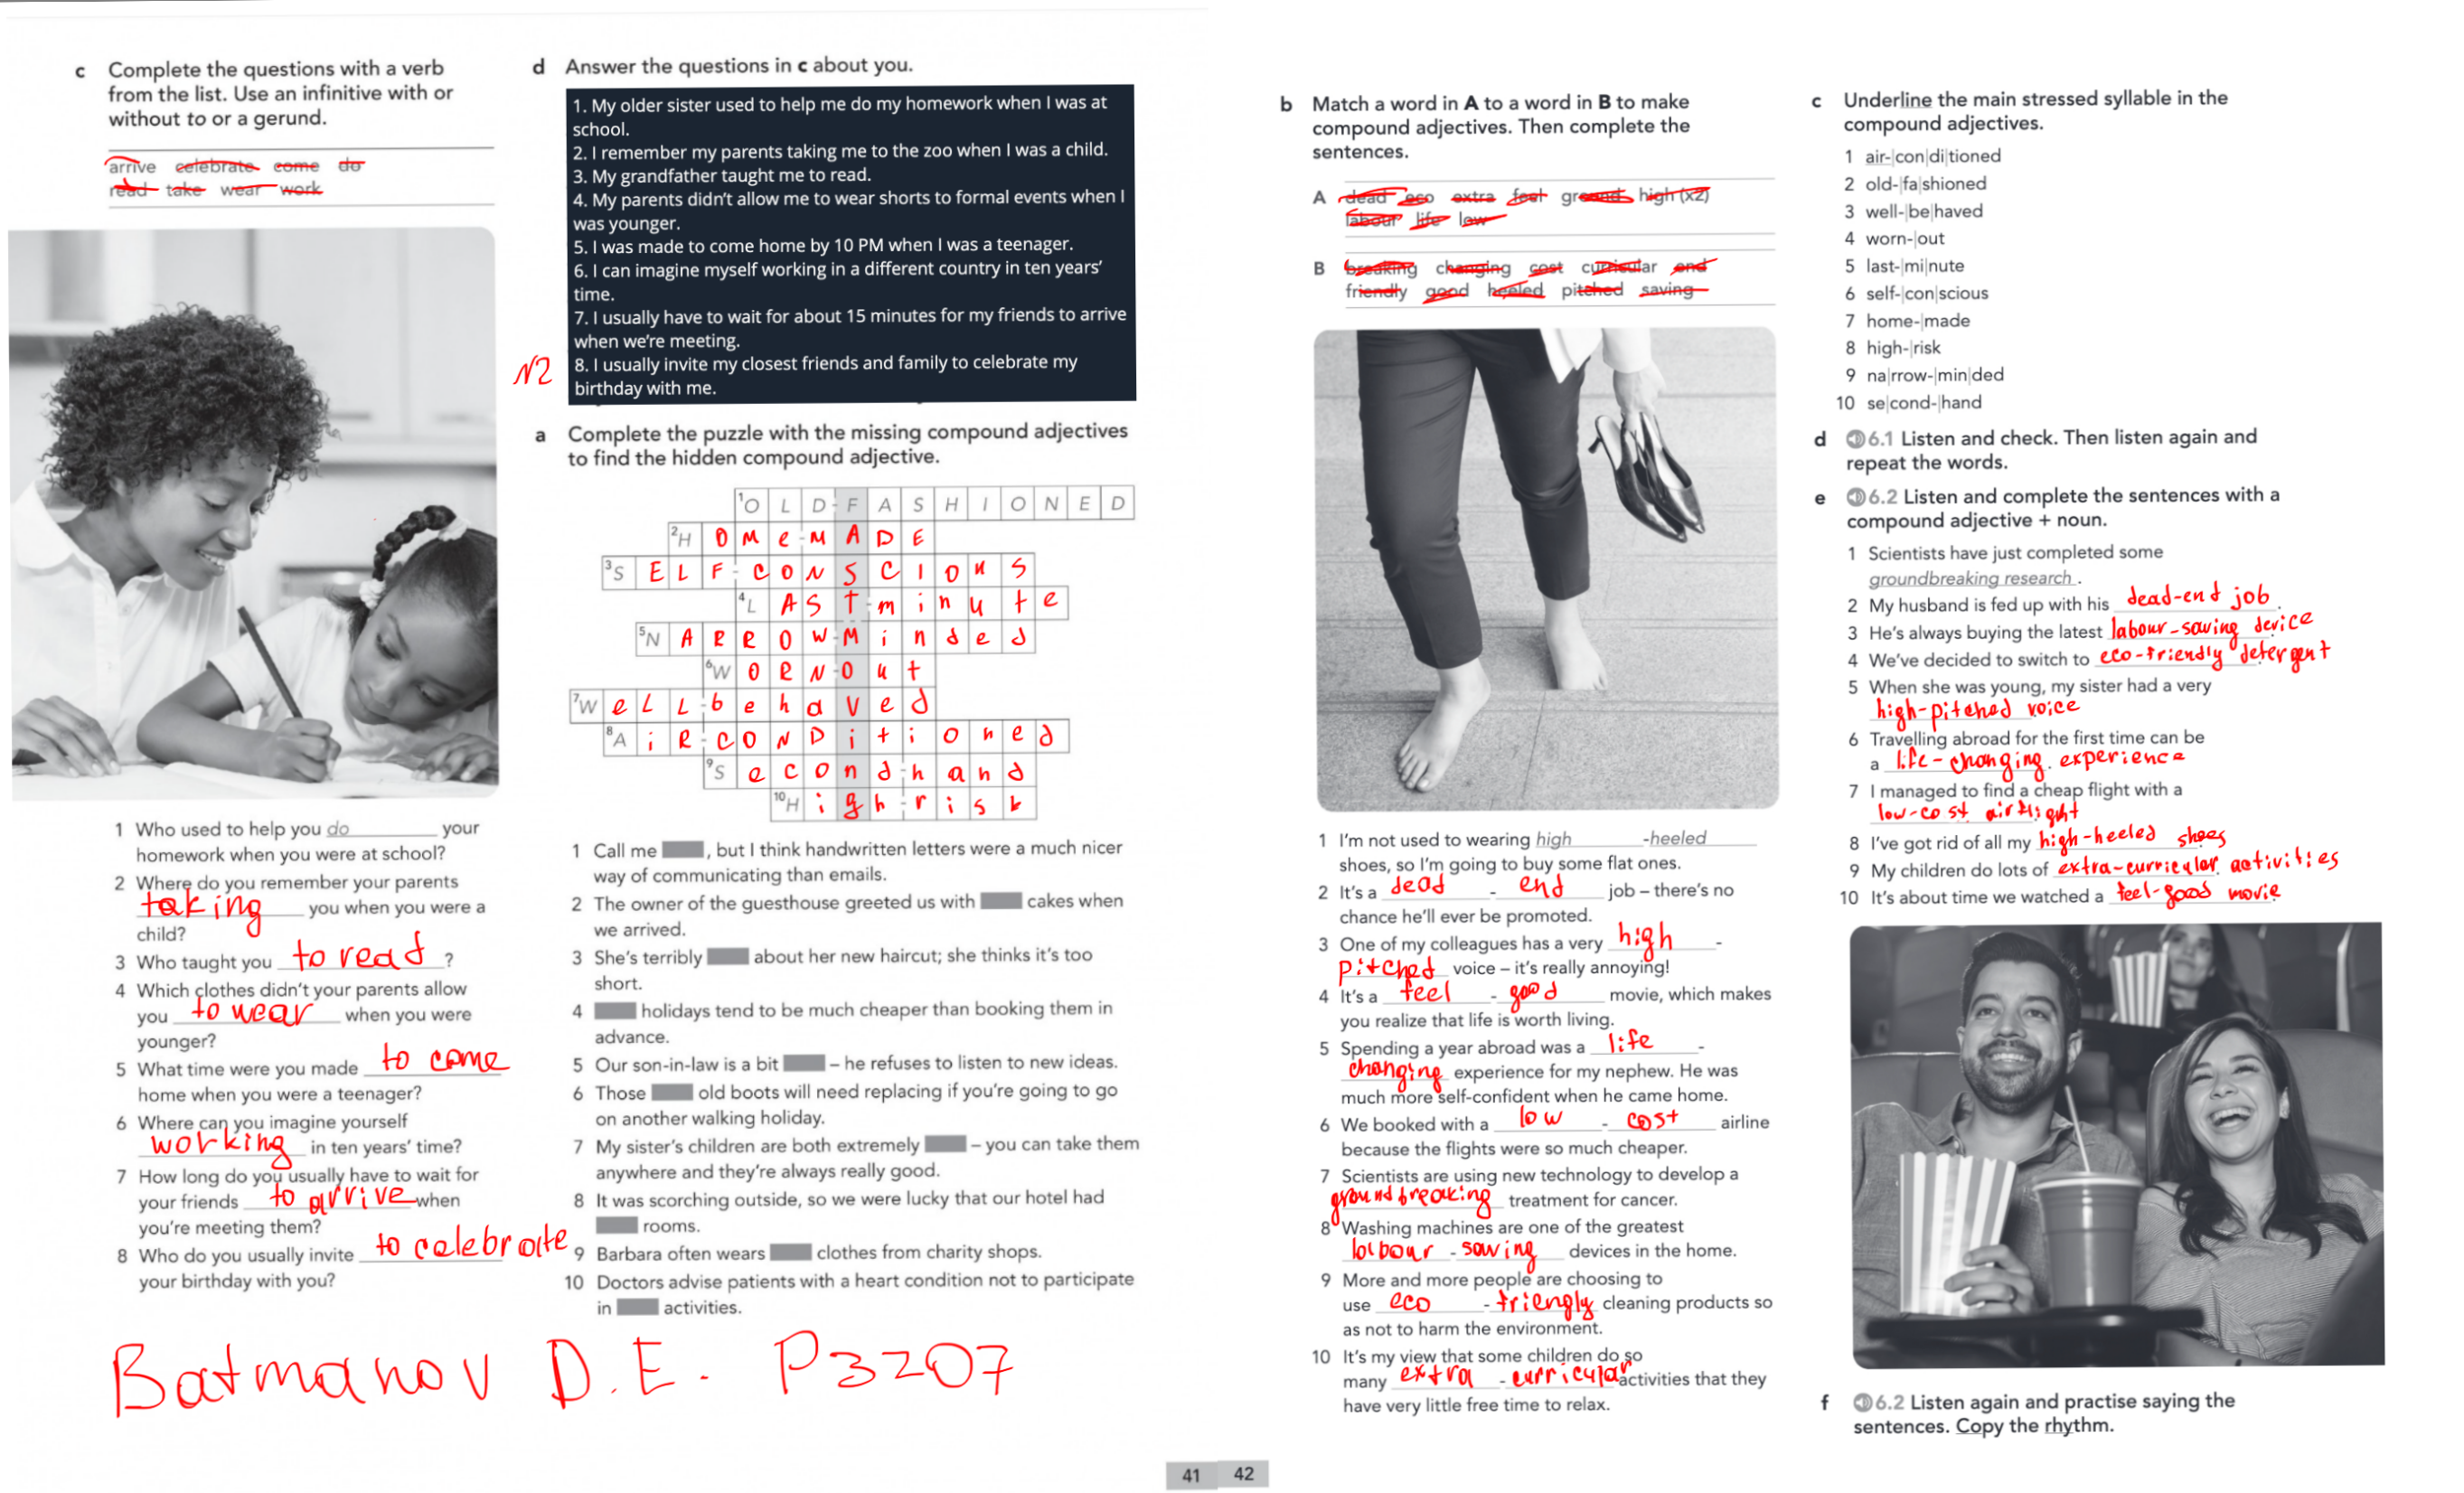 c Complete the questions with a verb
from the list. Use an infinitive with or
without to or a gerund.
arrive celebrate come do
read take wear work
1 Who used to help you do your
homework when you were at school?
2 Where do you remember your parents
taking you when you were a
child?
3 Who taught you to read ?
4 Which clothes didn't your parents allow
you to wear when you were
younger?
5 What time were you made to come
home when you were a teenager?
6 Where can you imagine yourself
working in ten years' time?
7 How long do you usually have to wait for
your friends to arrive when
you're meeting them?
8 Who do you usually invite to celebrate
your birthday with you?
d Answer the questions in c about you.
1. My older sister used to help me do my homework when I was at
school.
2. I remember my parents taking me to the zoo when I was a child.
3. My grandfather taught me to read.
4. My parents didn't allow me to wear shorts to formal events when I
was younger.
5. I was made to come home by 10 PM when I was a teenager.
6. I can imagine myself working in a different country in ten years'
time.
7. I usually have to wait for about 15 minutes for my friends to arrive
when we're meeting.
8. I usually invite my closest friends and family to celebrate my
birthday with me.
N2
a Complete the puzzle with the missing compound adjectives
to find the hidden compound adjective.
1 OLD-FASHIONED
2 HOMe-MADE
3 SELF-CONSCIOUS
4 LAST-minute
5 NARROW-Minded
6 WORN-Out
7 WeLL-behaved
8 AiR-CONDitioned
9 Second-hand
10 High-risk
1 Call me , but I think handwritten letters were a much nicer
way of communicating than emails.
2 The owner of the guesthouse greeted us with cakes when
we arrived.
3 She's terribly about her new haircut; she thinks it's too
short.
4 holidays tend to be much cheaper than booking them in
advance.
5 Our son-in-law is a bit – he refuses to listen to new ideas.
6 Those old boots will need replacing if you're going to go
on another walking holiday.
7 My sister's children are both extremely – you can take them
anywhere and they're always really good.
8 It was scorching outside, so we were lucky that our hotel had
rooms.
9 Barbara often wears clothes from charity shops.
10 Doctors advise patients with a heart condition not to participate
in activities.
Batmanov D.E. P3207
41
b Match a word in A to a word in B to make
compound adjectives. Then complete the
sentences.
A dead eco extra feel ground high (x2)
labour life low
B breaking changing cost curricular end
friendly good heeled pitched saving
1 I'm not used to wearing high -heeled
shoes, so I'm going to buy some flat ones.
2 It's a dead - end job – there's no
chance he'll ever be promoted.
3 One of my colleagues has a very high -
pitched voice – it's really annoying!
4 It's a feel - good movie, which makes
you realize that life is worth living.
5 Spending a year abroad was a life -
changing experience for my nephew. He was
much more self-confident when he came home.
6 We booked with a low - cost airline
because the flights were so much cheaper.
7 Scientists are using new technology to develop a
groundbreaking treatment for cancer.
8 Washing machines are one of the greatest
labour - saving devices in the home.
9 More and more people are choosing to
use eco - friengly cleaning products so
as not to harm the environment.
10 It's my view that some children do so
many extra - curricular activities that they
have very little free time to relax.
42
c Underline the main stressed syllable in the
compound adjectives.
1 air-|con|di|tioned
2 old-|fa|shioned
3 well-|be|haved
4 worn-|out
5 last-|mi|nute
6 self-|con|scious
7 home-|made
8 high-|risk
9 na|rrow-|min|ded
10 se|cond-|hand
d 6.1 Listen and check. Then listen again and
repeat the words.
e 6.2 Listen and complete the sentences with a
compound adjective + noun.
1 Scientists have just completed some
groundbreaking research .
2 My husband is fed up with his dead-end job .
3 He's always buying the latest labour-saving device .
4 We've decided to switch to eco-friendly detergent .
5 When she was young, my sister had a very
high-pitched voice .
6 Travelling abroad for the first time can be
a life-changing experience .
7 I managed to find a cheap flight with a
low-cost airflight .
8 I've got rid of all my high-heeled shoes .
9 My children do lots of extra-curricular activities .
10 It's about time we watched a feel-good movie .
f 6.2 Listen again and practise saying the
sentences. Copy the rhythm.